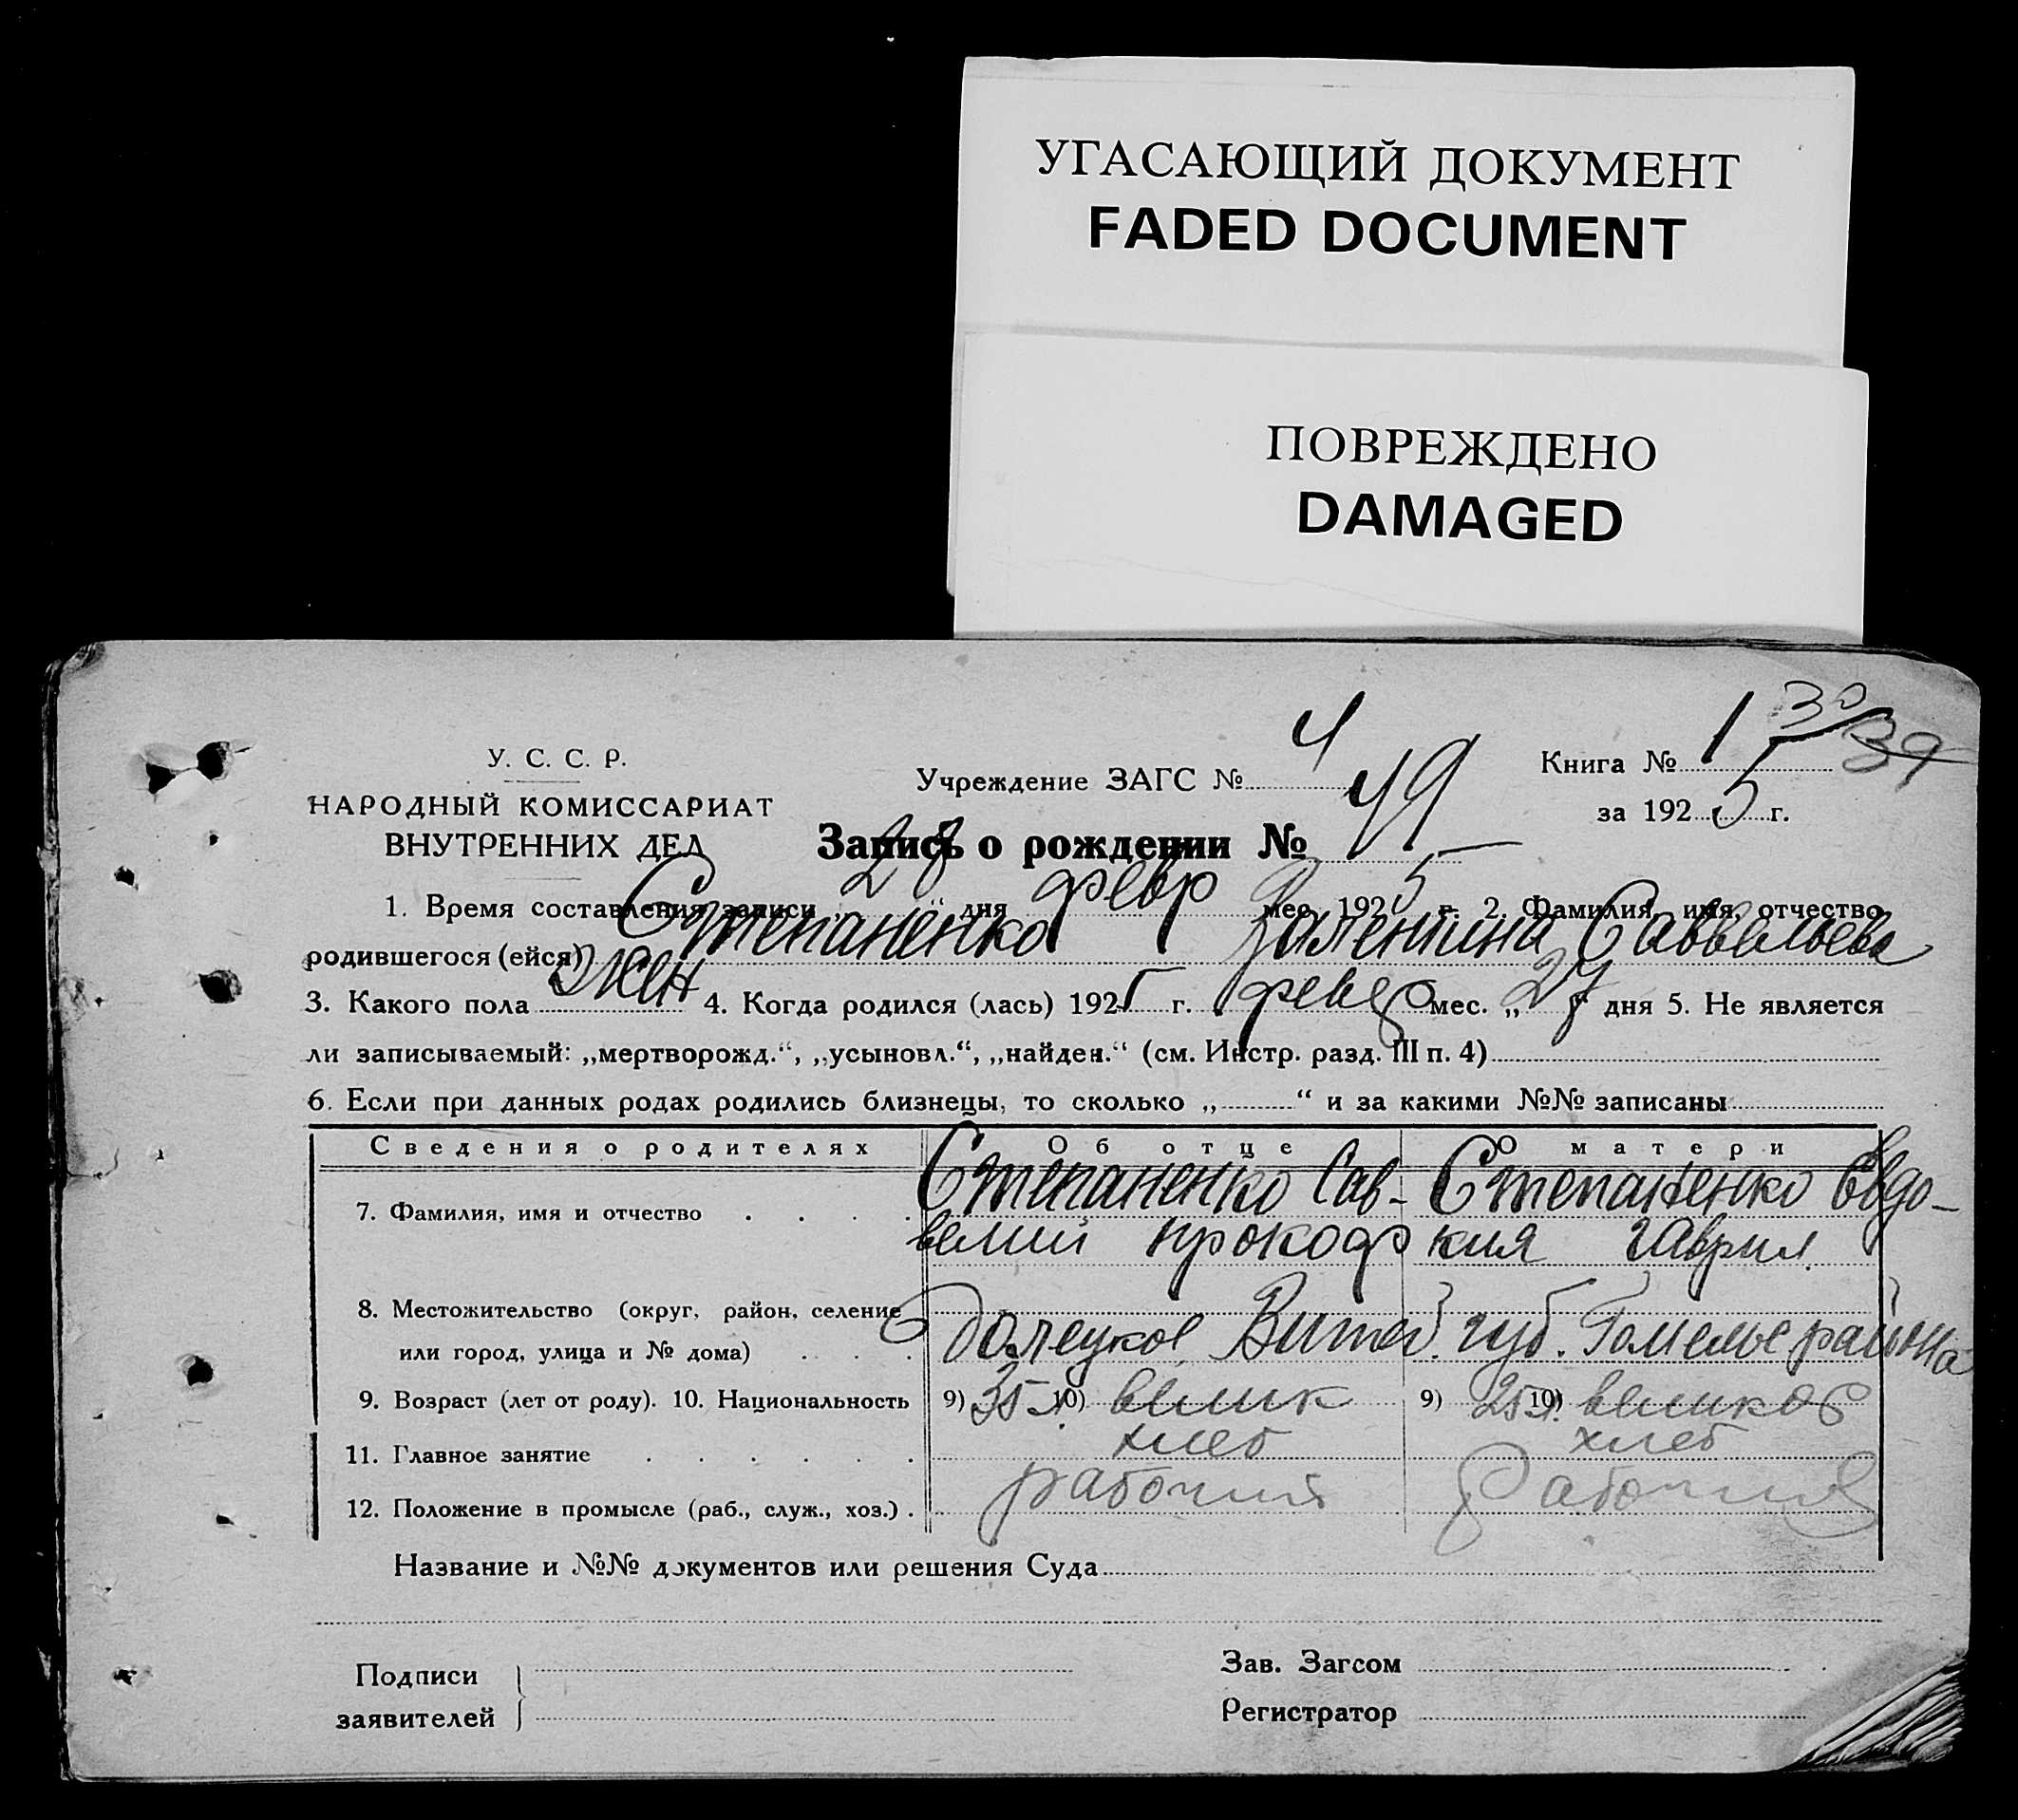 УГАСАЮЩИЙ ДОКУМЕНТ
FADED DOCUMENT
ПОВРЕЖДЕНО
DAMAGED
У. С. С. Р.
НАРОДНЫЙ КОМИССАРИАТ
ВНУТРЕННИХ ДЕЛ
Учреждение ЗАГС № 4
Книга № 1 30 39
за 1925 г.
Запись о рождении № 49
1. Время составления записи 28 дня февр мес. 1925 г. 2. Фамилия, имя, отчество
родившегося (ейся) Степаненко Валентина Саввельева
3. Какого пола жен 4. Когда родился (лась) 1925 г. мес. „27“ дня 5. Не является
ли записываемый: „мертворожд.“, „усыновл.“, „найден.“ (см. Инстр. разд. III п. 4)
6. Если при данных родах родились близнецы, то сколько „ “ и за какими №№ записаны
Сведения о родителях Об отце О матери
7. Фамилия, имя и отчество Степаненко Сав- Степаненко Евдо-
велий Прокоф кия Гаврил.
8. Местожительство (округ, район, селение
или город, улица и № дома) губ. района
9. Возраст (лет от роду). 10. Национальность 9) 35 л. 10) велик 9) 25 л. 10) великор
11. Главное занятие хлеб хлеб
12. Положение в промысле (раб., служ., хоз.) рабочий Рабочий
Название и №№ документов или решения Суда
Подписи
заявителей
Зав. Загсом
Регистратор